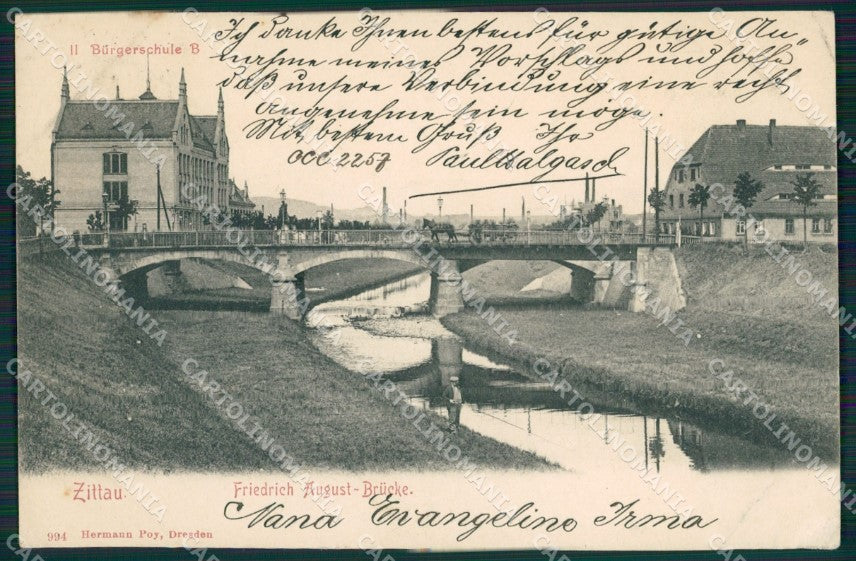 II Bürgerschule B
Ich danke Ihnen bestens für gütige An-
nahme meines Vorschlags und hoffe
daß unsere Verbindung eine recht
Angenehme sein möge.
Mit bestem Gruß Ihr
2257 Paul
Zittau.
Friedrich August-Brücke.
Nana Evangeline Irma
994 Hermann Poy, Dresden
CARTOLINOMANIA.COM